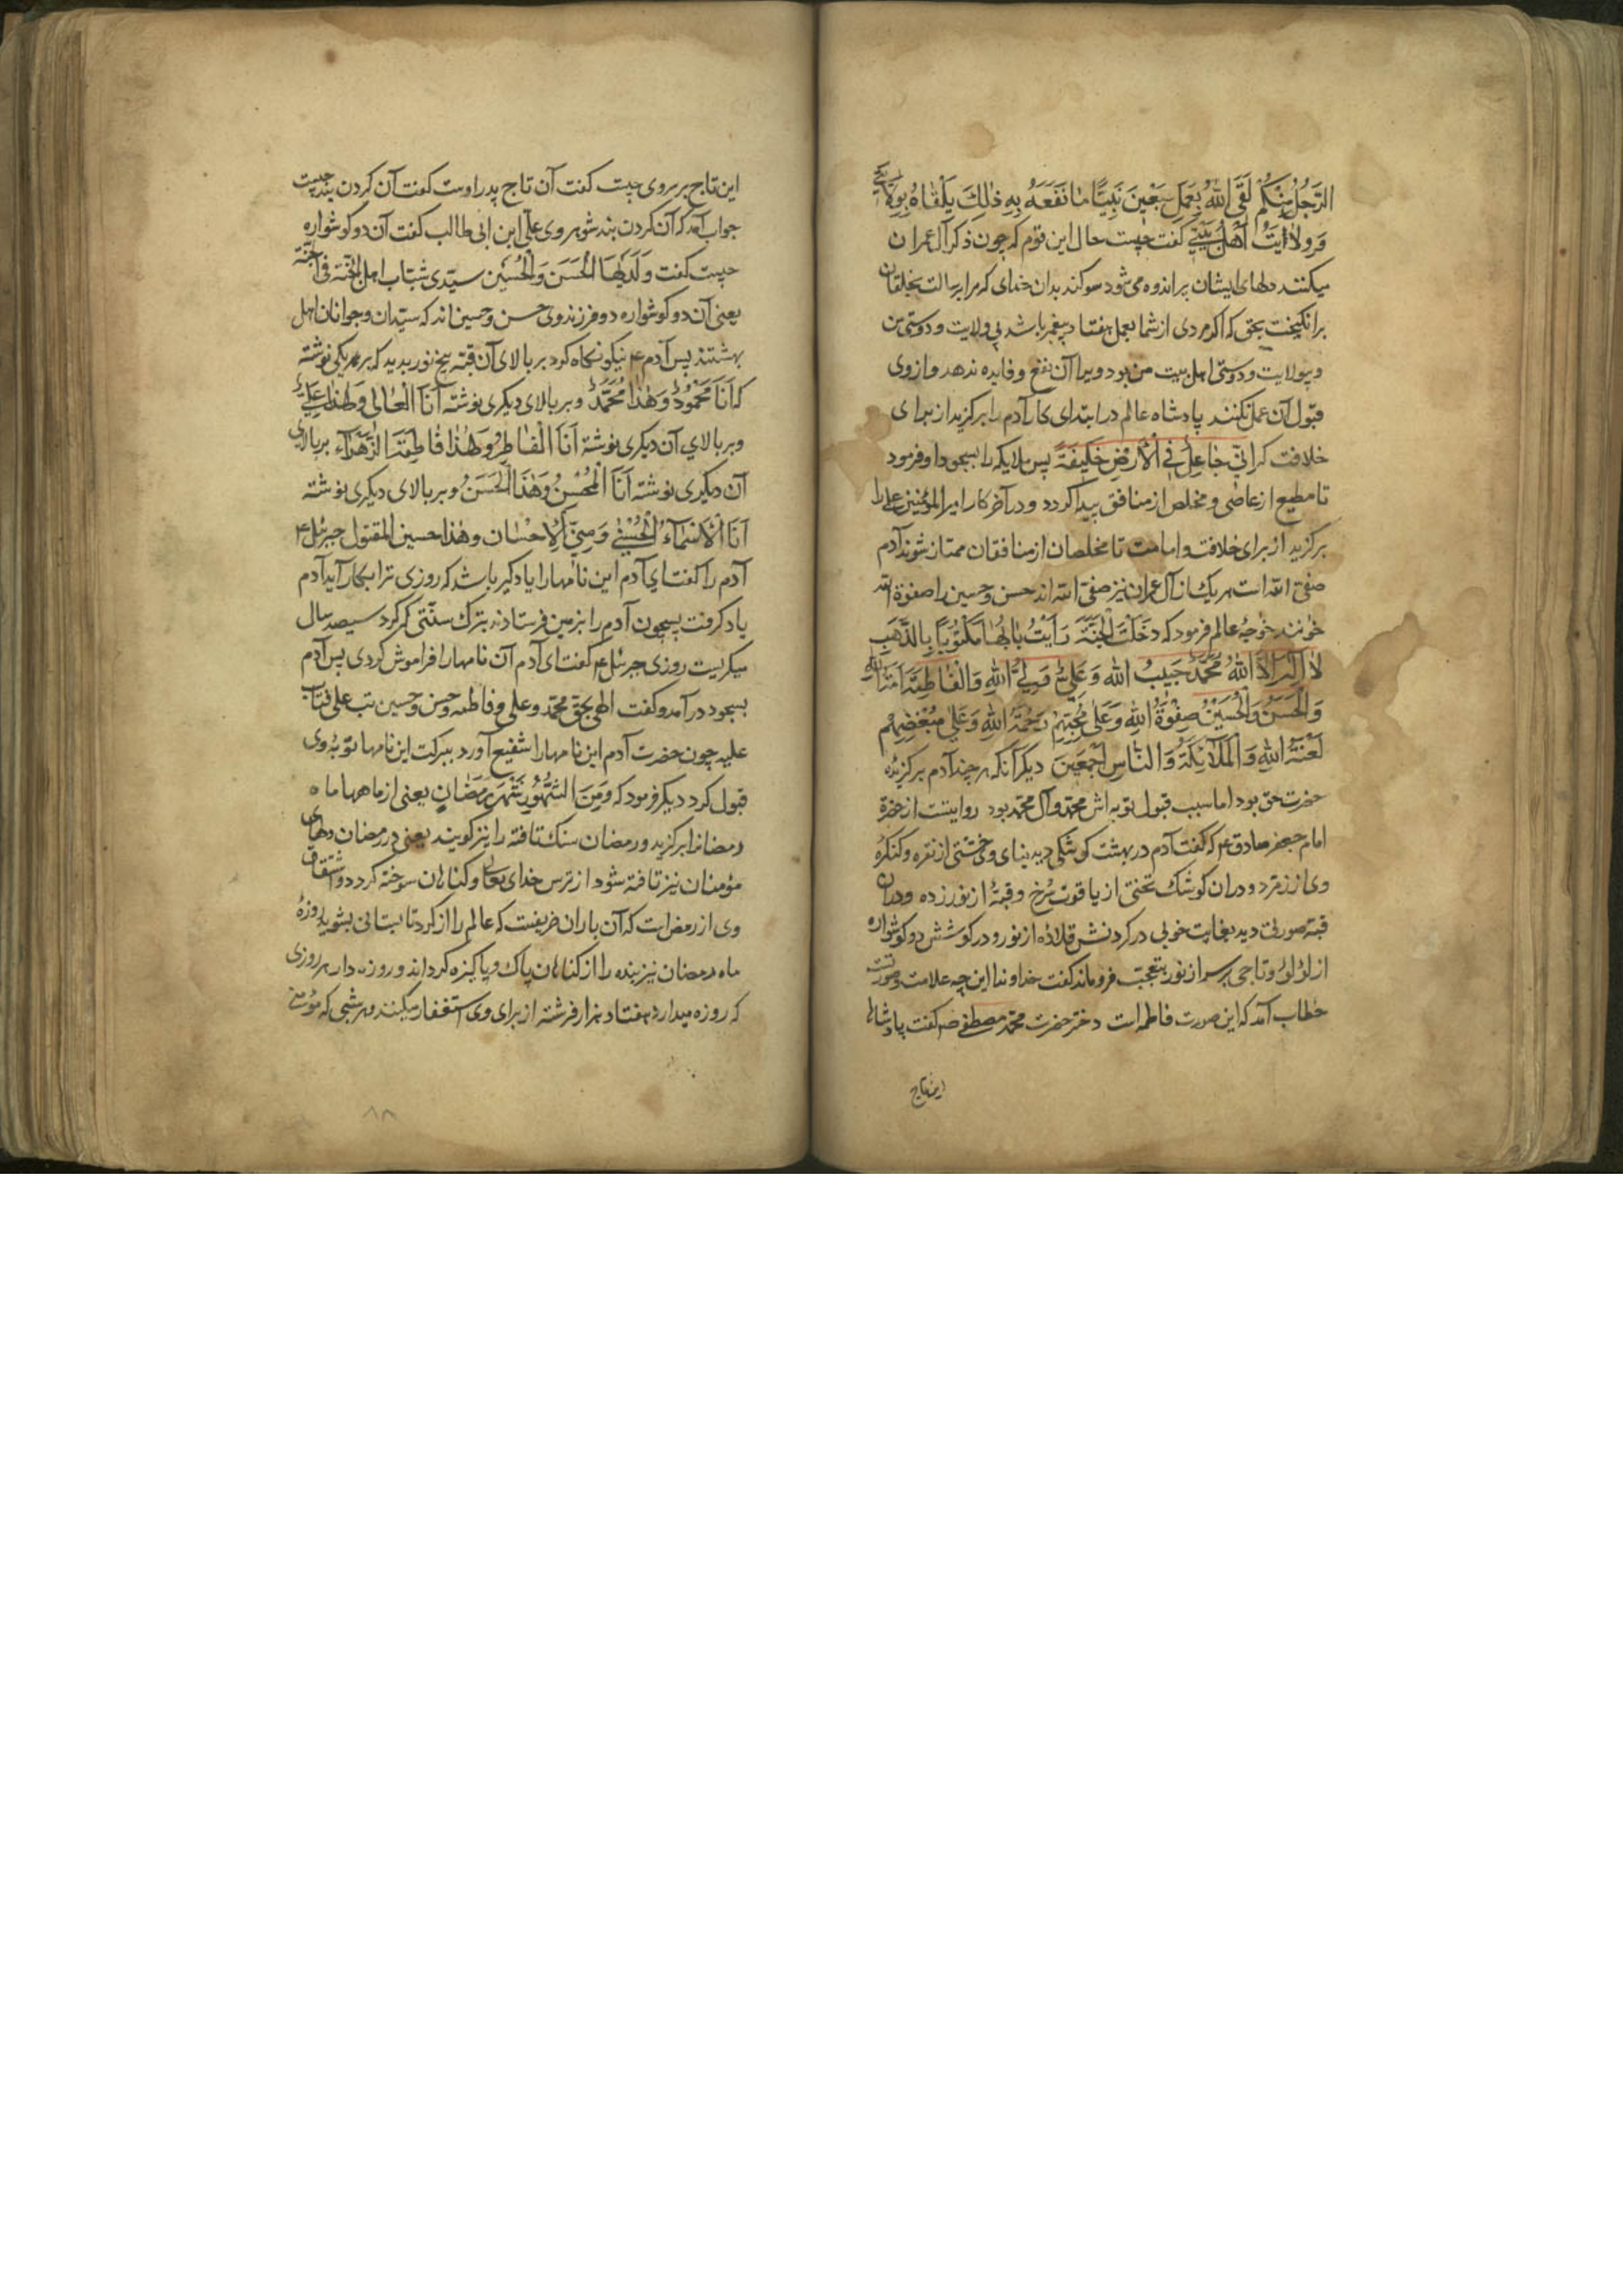 الرَّجُلُ مِنْكُمْ لَقَى اللهَ بِعَمَلِ سَبْعِينَ نَبِيًّا مَا نَفَعَهُ بِهِ ذٰلِكَ يَلْقَاهُ بِوِلَايَتِي
وَوِلَايَتِ اَهْلِ بَيْتِي كفت چیست حال این قوم که چون ذکر آل عمران
میکنند دلهای ایشان پر اندوه می شود سوکند بدان خدای که مرا برسالت بخلقان
برانکیخت بحق که اکر مردی از شما بعمل هفتاد پیغمبر باشد بی ولایت و دوستی من
و بیولایت و دوستی اهل بیت من بود ویرا آن نفع و فایده ندهد و از وی
قبول آن عمل نکنند پادشاه عالم در ابتدای کار آدم را برکزید از برای
خلافت که اِنّی جَاعِلٌ فِی الْاَرْضِ خَلِیفَةً پس ملایکه را بسجود او فرمود
تا مطیع از عاصی و مخلص از منافق پیدا کردد و در آخر کار امیر المؤمنین علی را
برکزید از برای خلافت و امامت تا مخلصان از منافقان ممتاز شوند آدم
صفی الله است هر یک از آل عمران نیز صفی الله اند حسن و حسین را صفوة الله
خوانند خوجۀ عالم فرمود که دَخَلْتُ الْجَنَّةَ رَاَیْتُ بَابَهَا مَکْتُوبًا بِالذَّهَبِ
لَا اِلٰهَ اِلَّا اللهُ مُحَمَّدٌ حَبِیبُ اللهِ وَ عَلِیٌّ وَلِیُّ اللهِ وَالْفَاطِمَةُ اَمَةُ اللهِ
وَالْحَسَنُ وَالْحُسَیْنُ صِفْوَةُ اللهِ وَعَلٰی مُحِبِّهِمْ رَحْمَةُ اللهِ وَعَلٰی مُبْغِضِهِمْ
لَعْنَةُ اللهِ وَالْمَلَائِکَةِ وَالنَّاسِ اَجْمَعِینَ دیکر آنکه هر چند آدم برکزیده
حضرت حق بود اما سبب قبول توبه اش محمد و آل محمد بود روایتست از حضرة
امام جعفر صادق ع که کفت آدم در بهشت کوشکی دید بنای وی خشتی از نقره و کنکره
وی از زمرد و در ان کوشک تختی از یاقوت سُرخ و قبۀ از نور زده و دران
قبه صورتی دید بغایت خوبی در کردنش قلاده از نور و در کوشش دو کوشواره
از لؤلؤ و تاجی بر سر از نور بتعجب فروماند کفت خداوندا این چه علامت و صورتست
خطاب آمد که این صورت فاطمه است دختر حضرت محمد مصطفی ص کفت پادشاها
این تاج
این تاج بر سر وی چیست کفت آن تاج پدر اوست کفت آن کردن بند چیست
جواب آمد که آن کردن بند شوهر وی علی ابن ابی طالب کفت آن دو کوشواره
چیست کفت وَلَدَیْهَا الْحَسَنَ وَالْحُسَیْنِ سیّدی شباب اهل الجنّة فی الجنّة
یعنی آن دو کوشواره دو فرزند وی حسن و حسین اند که سیّدان و جوانان اهل
بهشتند پس آدم ع نیکو نکاه کرد بر بالای آن قبه پنج نور بدید که بر هر یکی نوشته
که اَنَا مَحْمُودٌ وَهٰذَا مُحَمَّدٌ و بر بالای دیکری نوشته اَنَا الْعَالِی وَهٰذَا عَلِیٌّ
و بر بالای آن دیکری نوشته اَنَا الْفَاطِرُ وَهٰذَا فَاطِمَةُ الزَّهْرَاء بر بالای
آن دیکری نوشته اَنَا الْمُحْسِنُ وَهٰذَا الْحَسَنُ و بر بالای دیکری نوشته
اَنَا الْاَسْمَاءُ الْحُسْنٰی وَمِنِّی الْاِحْسَان وهٰذا حسین المقتول جبرئیل ع
آدم را کفت ای آدم این نامها را یاد کیر باشد که روزی ترا بکار آید آدم
یاد کرفت پسچون آدم را بزمین فرستادند بترک سنّتی که کرد سیصد سال
میکریست روزی جبرئیل ع کفت ای آدم آن نامها را فراموش کردی پس آدم
بسجود درآمد و کفت الهی بحق محمد و علی و فاطمه و حسن و حسین تب علی فتاب
علیه چون حضرت آدم این نامها را شفیع آورد ببرکت این نامها توبۀ وی
قبول کرد دیکر فرمود که وَمِنَ الشُّهُورِ شَهْرَ رَمَضَان یعنی از ماهها ماه
رمضانرا برکزید و رمضان سنک تافته را نیز کویند یعنی در رمضان دلهای
مؤمنان نیز تافته شود از ترس خدای تعالی و کناهان سوخته کردد و اشتقاق
وی از رمض است که آن باران خریفست که عالم را از کرد تابستانی بشوید روزۀ
ماه رمضان نیز بنده را از کناهان پاک و پاکیزه کرداند و روزه دار هر روزی
که روزه میدارد هفتاد هزار فرشته از برای وی استغفار میکنند و هر شبی که مؤمن
۸۸